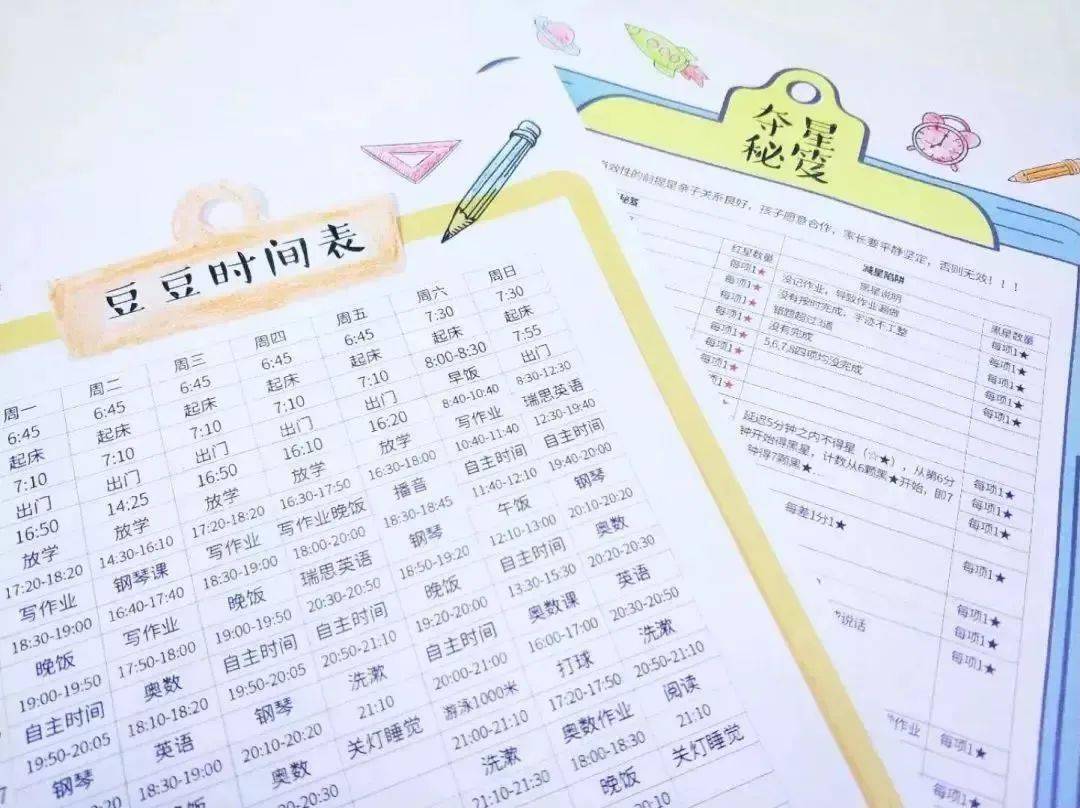 豆豆时间表
周一
6:45
起床
7:10
出门
16:50
放学
17:20-18:20
写作业
18:30-19:00
晚饭
19:00-19:50
自主时间
19:50-20:05
钢琴
周二
6:45
起床
7:10
出门
14:25
放学
14:30-16:10
钢琴课
16:40-17:40
写作业
17:50-18:00
奥数
18:10-18:20
英语
18:30-19:00
周三
6:45
起床
7:10
出门
16:50
放学
17:20-18:20
写作业
18:30-19:00
晚饭
19:00-19:50
自主时间
19:50-20:05
钢琴
20:10-20:20
奥数
周四
6:45
起床
7:10
出门
16:10
放学
16:30-17:50
写作业晚饭
18:00-20:00
瑞思英语
20:30-20:50
自主时间
20:50-21:10
洗漱
21:10
关灯睡觉
周五
6:45
起床
7:10
出门
16:20
放学
16:30-18:00
播音
18:30-18:45
钢琴
18:50-19:20
晚饭
19:20-20:00
自主时间
20:00-21:00
游泳1000米
21:00-21:10
洗漱
21:10-21:30
周六
7:30
起床
8:00-8:30
早饭
8:40-10:40
写作业
10:40-11:40
自主时间
11:40-12:10
午饭
12:10-13:00
自主时间
13:30-15:30
奥数课
16:00-17:00
打球
17:20-17:50
奥数作业
18:00-18:30
晚饭
周日
7:30
起床
7:55
出门
8:30-12:30
瑞思英语
12:30-19:40
自主时间
19:40-20:00
钢琴
20:10-20:20
奥数
20:20-20:30
英语
20:30-20:50
洗漱
20:50-21:10
阅读
21:10
关灯睡觉
夺星
秘笈
效性的前提是亲子关系良好，孩子愿意合作，家长要平静坚定，否则无效！！！
秘笈
减星陷阱
红星数量 黑星说明 黑星数量
每项1★ 没记作业，导致作业漏做 每项1★
每项1★ 没有按时完成，字迹不工整 每项1★
每项1★ 错题超过3道 每项1★
每项1★ 没有完成 每项1★
每项1★ 5,6,7,8四项均没完成 每项1★
每项1★
项1★
延迟5分钟之内不得星（☆★），从第6分
钟开始得黑星，计数从6颗黑★开始，即7
钟得7颗黑★，
每项1★
每项1★
每项1★
每差1分1★
每项1★
每项1★
说话
每项1★
每项1★
作业
每项1★
每项1★